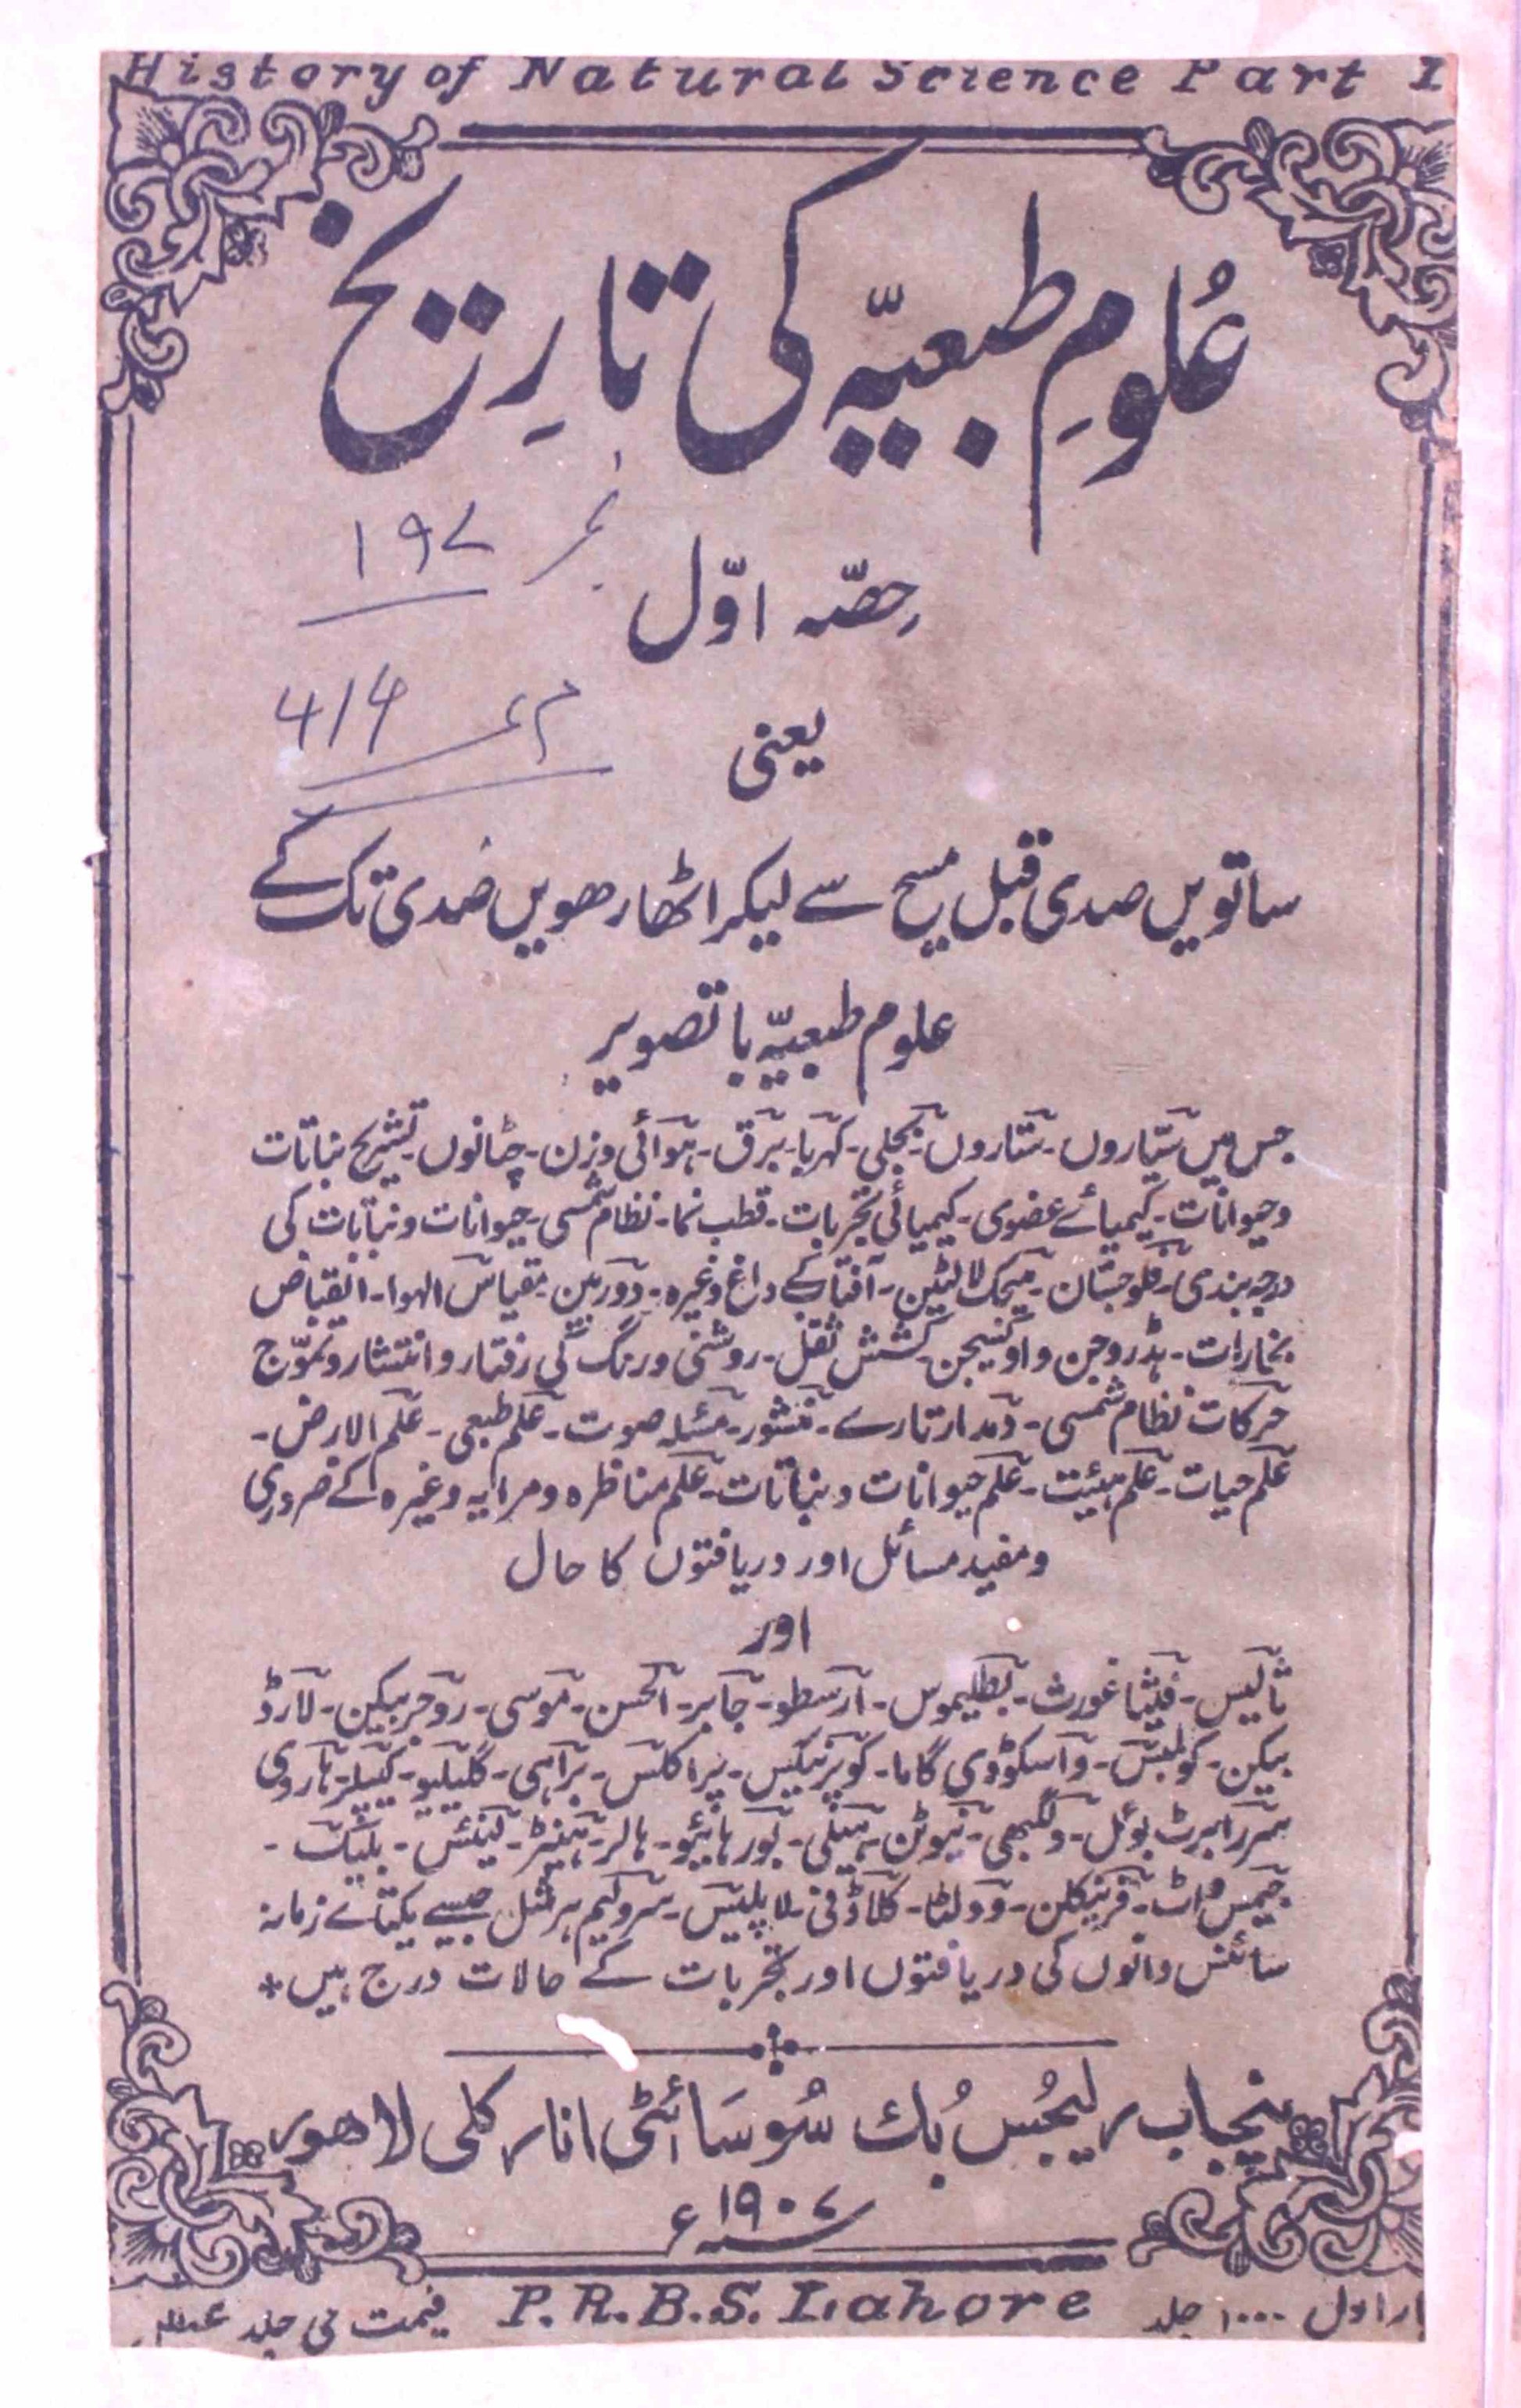 History of Natural Science Part I
عُلومِ طبعیّہ کی تارِیخ
نمبر ۱۹۷
حِصّہ اوّل
یعنی
ساتویں صدی قبل مسیح سے لیکر اٹھارھویں صدی تک کے
علوم طبعیّہ با تصویر
جس میں سیّاروں ۔ ستاروں ۔ بجلی ۔ کہربا ۔ برق ۔ ہوائی وزن ۔ چٹانوں ۔ تشریح نباتات
و حیوانات ۔ کیمیائے عضوی ۔ کیمیائی تجربات ۔ قطب نما ۔ نظام شمسی ۔ حیوانات و نباتات کی
درجہ بندی ۔ فلوجستان ۔ میجک لالٹین ۔ آفتاب کے داغ وغیرہ ۔ دوربین ۔ مقیاس الہوا ۔ انقباض
بخارات ۔ ہڈروجن و اوکسیجن ۔ کشش ثقل ۔ روشنی و رنگ کی رفتار و انتشار و تموّج
حرکات نظام شمسی ۔ دمدار تارے ۔ منشور ۔ مسئلہ صوت ۔ علم طبعی ۔ علم الارض ۔
علم حیات ۔ علم ہئیت ۔ علم حیوانات و نباتات ۔ علم مناظرہ و مرایہ وغیرہ کے ضروری
و مفید مسائل اور دریافتوں کا حال
اور
ثالیس ۔ فیثاغورث ۔ بطلیموس ۔ ارسطو ۔ جابر ۔ الحسن ۔ موسی ۔ روجر بیکن ۔ لارڈ
بیکن ۔ کولمبس ۔ واسکوڈی گاما ۔ کوپرنیکس ۔ پراکلس ۔ براہی ۔ گلیلیو ۔ کیپلر ۔ ہاروی
سر رابرٹ بوئل ۔ ولگبھی ۔ نیوٹن ۔ ہیلی ۔ بورہائیو ۔ ہالر ۔ ہینٹر ۔ لینئس ۔ بلیک ۔
جیمس واٹ ۔ فرینکلن ۔ وولٹا ۔ کلاڈنی ۔ لاپلیس ۔ سر ولیم ہرشل جیسے یکتائے زمانہ
سائنس دانوں کی دریافتوں اور تجربات کے حالات درج ہیں *
پنجاب ریلیجُس بُک سُوسَائٹی انارکلی لاھور
سنہ ۱۹۰۷ء
بار اول ۱۰۰۰ جلد
P. R. B. S. Lahore
قیمت فی جلد